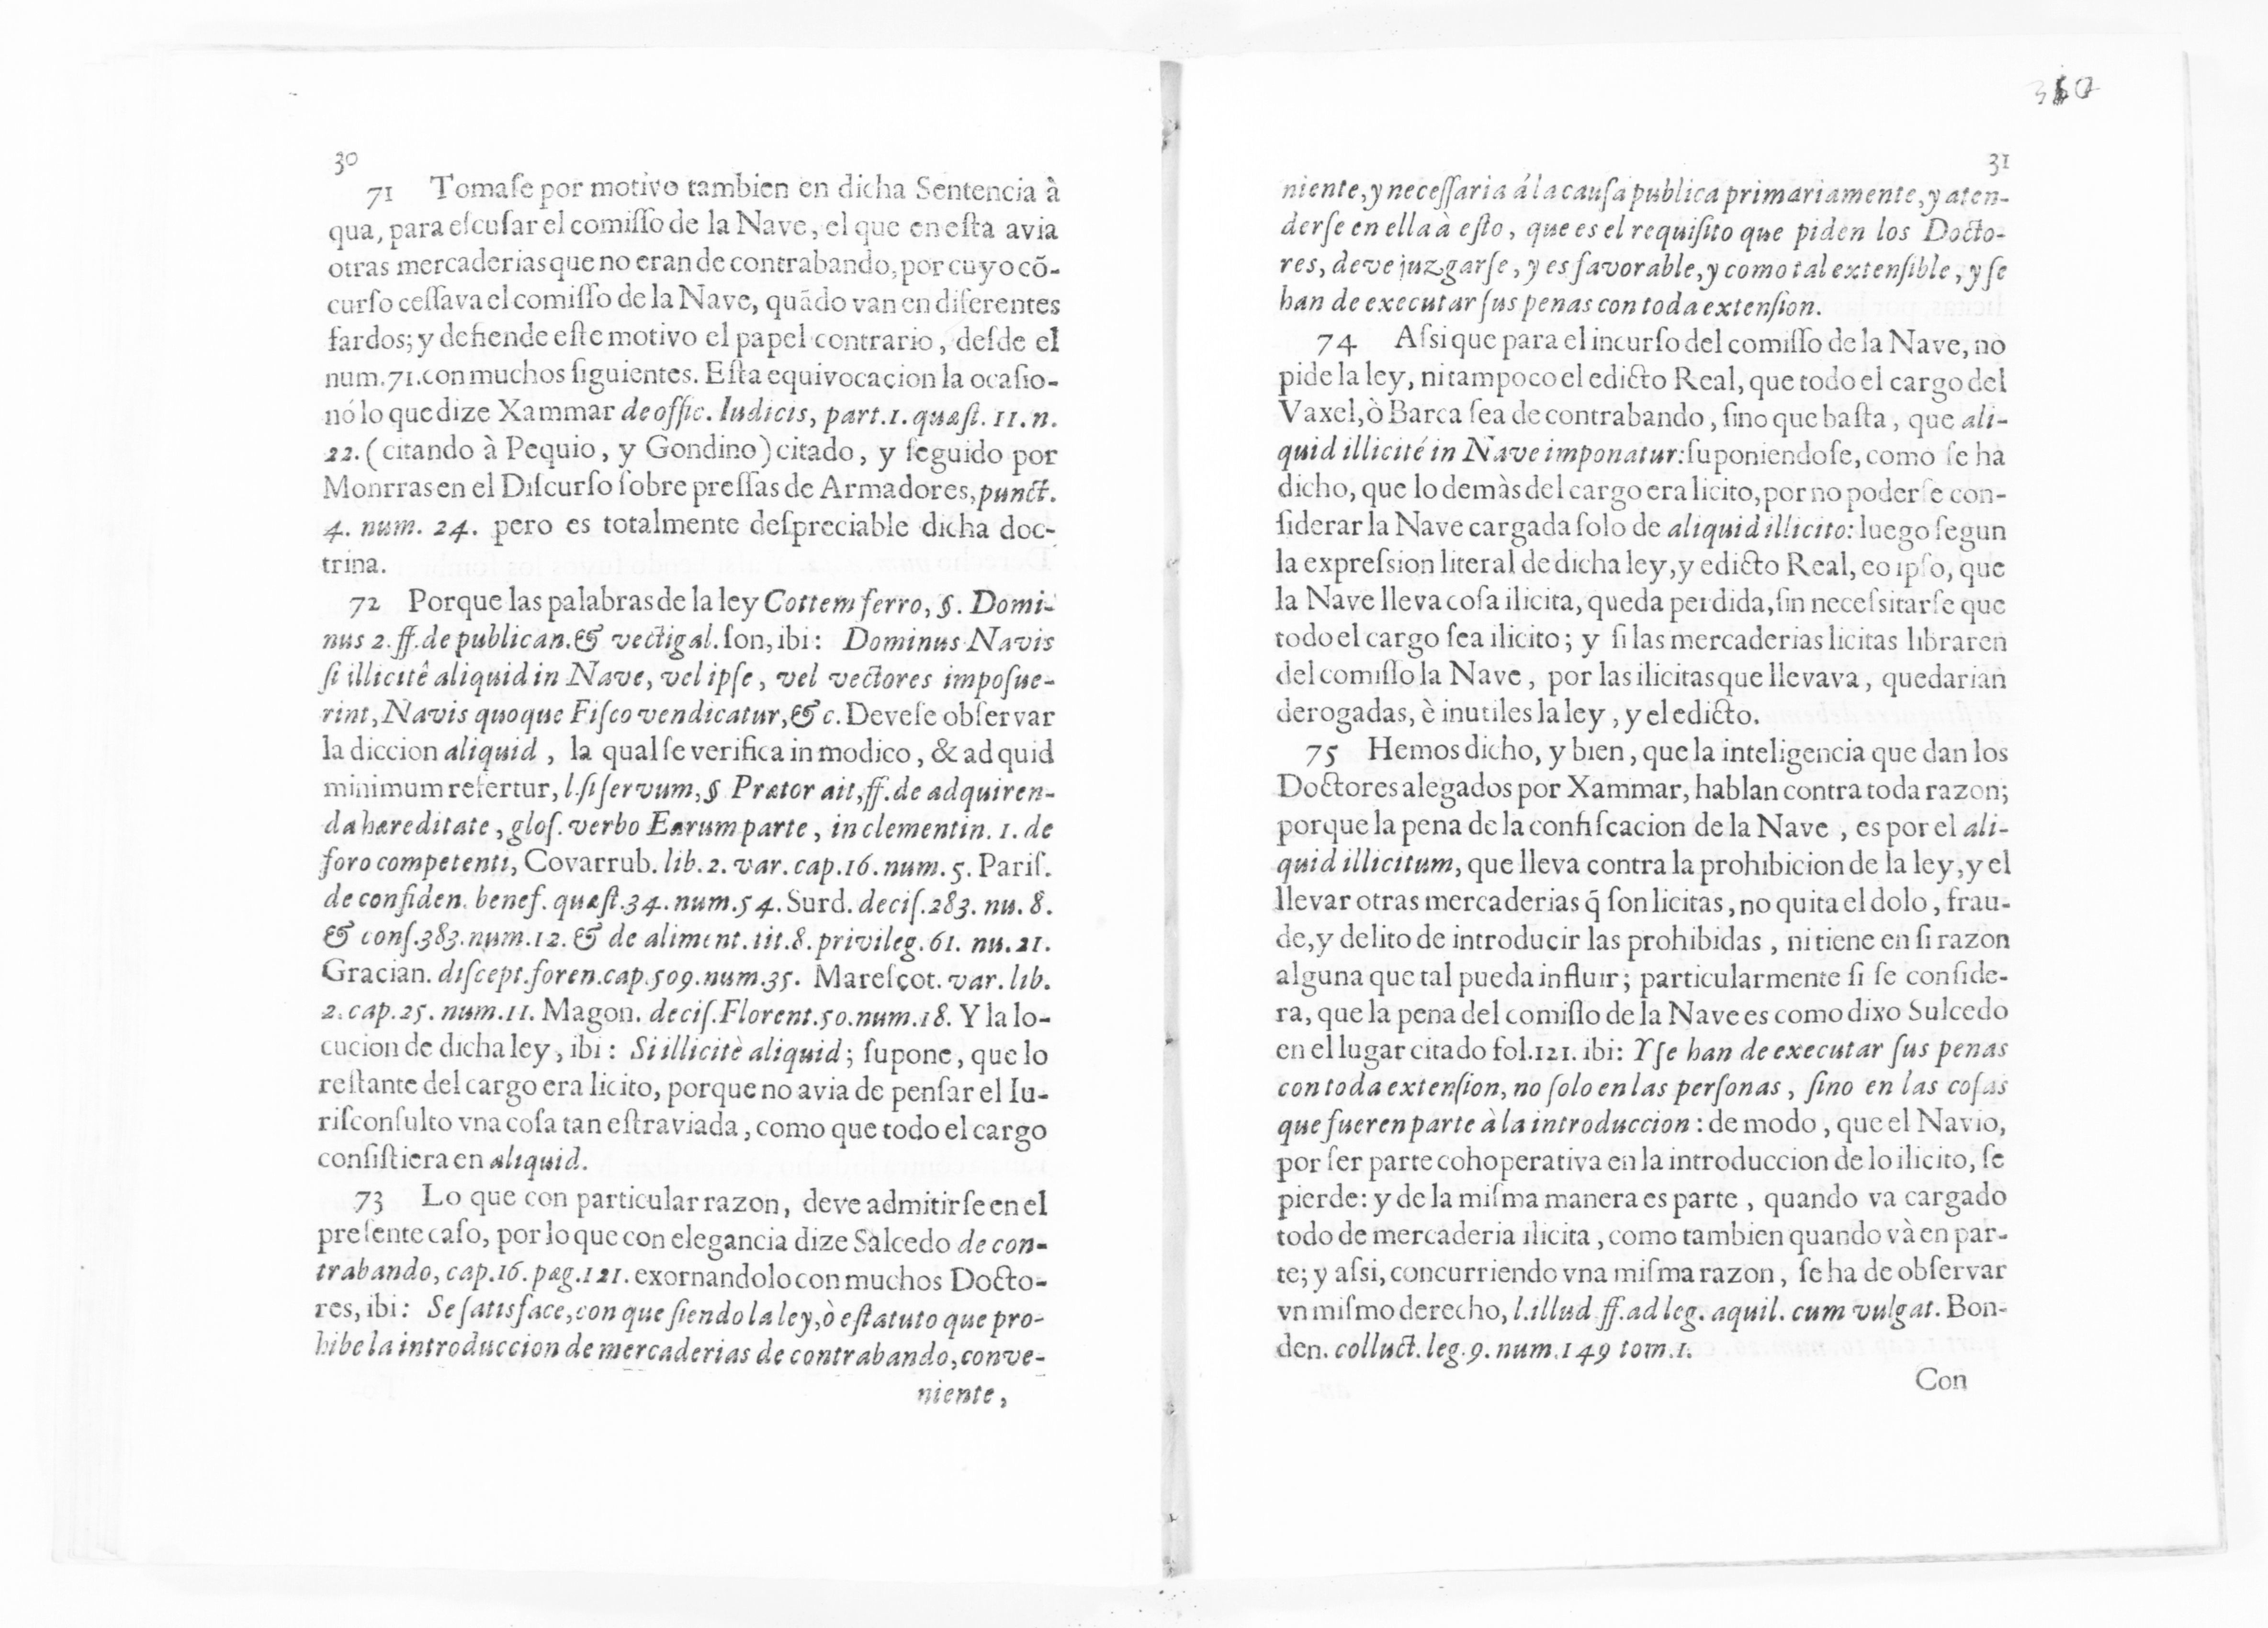 30
71 Tomaſe por motivo tambien en dicha Sentencia à
qua, para eſcuſar el comiſſo de la Nave, el que en eſta avia
otras mercaderias que no eran de contrabando, por cuyo cõ-
curſo ceſſava el comiſſo de la Nave, quãdo van en diferentes
fardos; y defiende eſte motivo el papel contrario, deſde el
num.71.con muchos ſiguientes. Eſta equivocacion la ocaſio-
nó lo que dize Xammar de offic. Iudicis, part.1. quæſt. 11. n.
22. (citando à Pequio, y Gondino) citado, y ſeguido por
Monrras en el Diſcurſo ſobre preſſas de Armadores, punct.
4. num. 24. pero es totalmente deſpreciable dicha doc-
trina.
72 Porque las palabras de la ley Cottem ferro, §. Domi-
nus 2. ff. de publican. & vectigal. ſon, ibi: Dominus Navis
ſi illicitê aliquid in Nave, vel ipſe, vel vectores impoſue-
rint, Navis quoque Fiſco vendicatur, & c. Deveſe obſervar
la diccion aliquid, la qual ſe verifica in modico, & ad quid
minimum refertur, l. ſi ſervum, § Prætor ait, ff. de adquiren-
da hæreditate, gloſ. verbo Earum parte, in clementin. 1. de
foro competenti, Covarrub. lib. 2. var. cap.16. num. 5. Pariſ.
de confiden. benef. quæſt.34. num.54. Surd. deciſ.283. nu. 8.
& conſ.383. num.12. & de aliment. tit.8. privileg.61. nu.21.
Gracian. diſcept. foren. cap.509. num.35. Mareſçot. var. lib.
2. cap.25. num.11. Magon. deciſ. Florent.50. num.18. Y la lo-
cucion de dicha ley, ibi: Si illicitè aliquid; ſupone, que lo
reſtante del cargo era licito, porque no avia de penſar el Iu-
riſconſulto vna coſa tan eſtraviada, como que todo el cargo
conſiſtiera en aliquid.
73 Lo que con particular razon, deve admitirſe en el
preſente caſo, por lo que con elegancia dize Salcedo de con-
trabando, cap.16. pag.121. exornandolo con muchos Docto-
res, ibi: Se ſatisface, con que ſiendo la ley, ò eſtatuto que pro-
hibe la introduccion de mercaderias de contrabando, conve-
niente,
31
niente, y neceſſaria á la cauſa publica primariamente, y aten-
derſe en ella à eſto, que es el requiſito que piden los Docto-
res, deve juzgarſe, y es favorable, y como tal extenſible, y ſe
han de executar ſus penas con toda extenſion.
74 Aſsi que para el incurſo del comiſſo de la Nave, no
pide la ley, ni tampoco el edicto Real, que todo el cargo del
Vaxel, ò Barca ſea de contrabando, ſino que baſta, que ali-
quid illicité in Nave imponatur: ſuponiendoſe, como ſe ha
dicho, que lo demàs del cargo era licito, por no poderſe con-
ſiderar la Nave cargada ſolo de aliquid illicito: luego ſegun
la expreſsion literal de dicha ley, y edicto Real, eo ipſo, que
la Nave lleva coſa ilicita, queda perdida, ſin neceſsitarſe que
todo el cargo ſea ilicito; y ſi las mercaderias licitas libraren
del comiſſo la Nave, por las ilicitas que llevava, quedarian
derogadas, è inutiles la ley, y el edicto.
75 Hemos dicho, y bien, que la inteligencia que dan los
Doctores alegados por Xammar, hablan contra toda razon;
porque la pena de la confiſcacion de la Nave, es por el ali-
quid illicitum, que lleva contra la prohibicion de la ley, y el
llevar otras mercaderias q̃ ſon licitas, no quita el dolo, frau-
de, y delito de introducir las prohibidas, ni tiene en ſi razon
alguna que tal pueda influir; particularmente ſi ſe conſide-
ra, que la pena del comiſſo de la Nave es como dixo Sulcedo
en el lugar citado fol.121. ibi: Y ſe han de executar ſus penas
con toda extenſion, no ſolo en las perſonas, ſino en las coſas
que fueren parte à la introduccion: de modo, que el Navio,
por ſer parte cohoperativa en la introduccion de lo ilicito, ſe
pierde: y de la miſma manera es parte, quando va cargado
todo de mercaderia ilicita, como tambien quando và en par-
te; y aſsi, concurriendo vna miſma razon, ſe ha de obſervar
vn miſmo derecho, l. illud ff. ad leg. aquil. cum vulgat. Bon-
den. colluct. leg. 9. num.149 tom.1.
Con